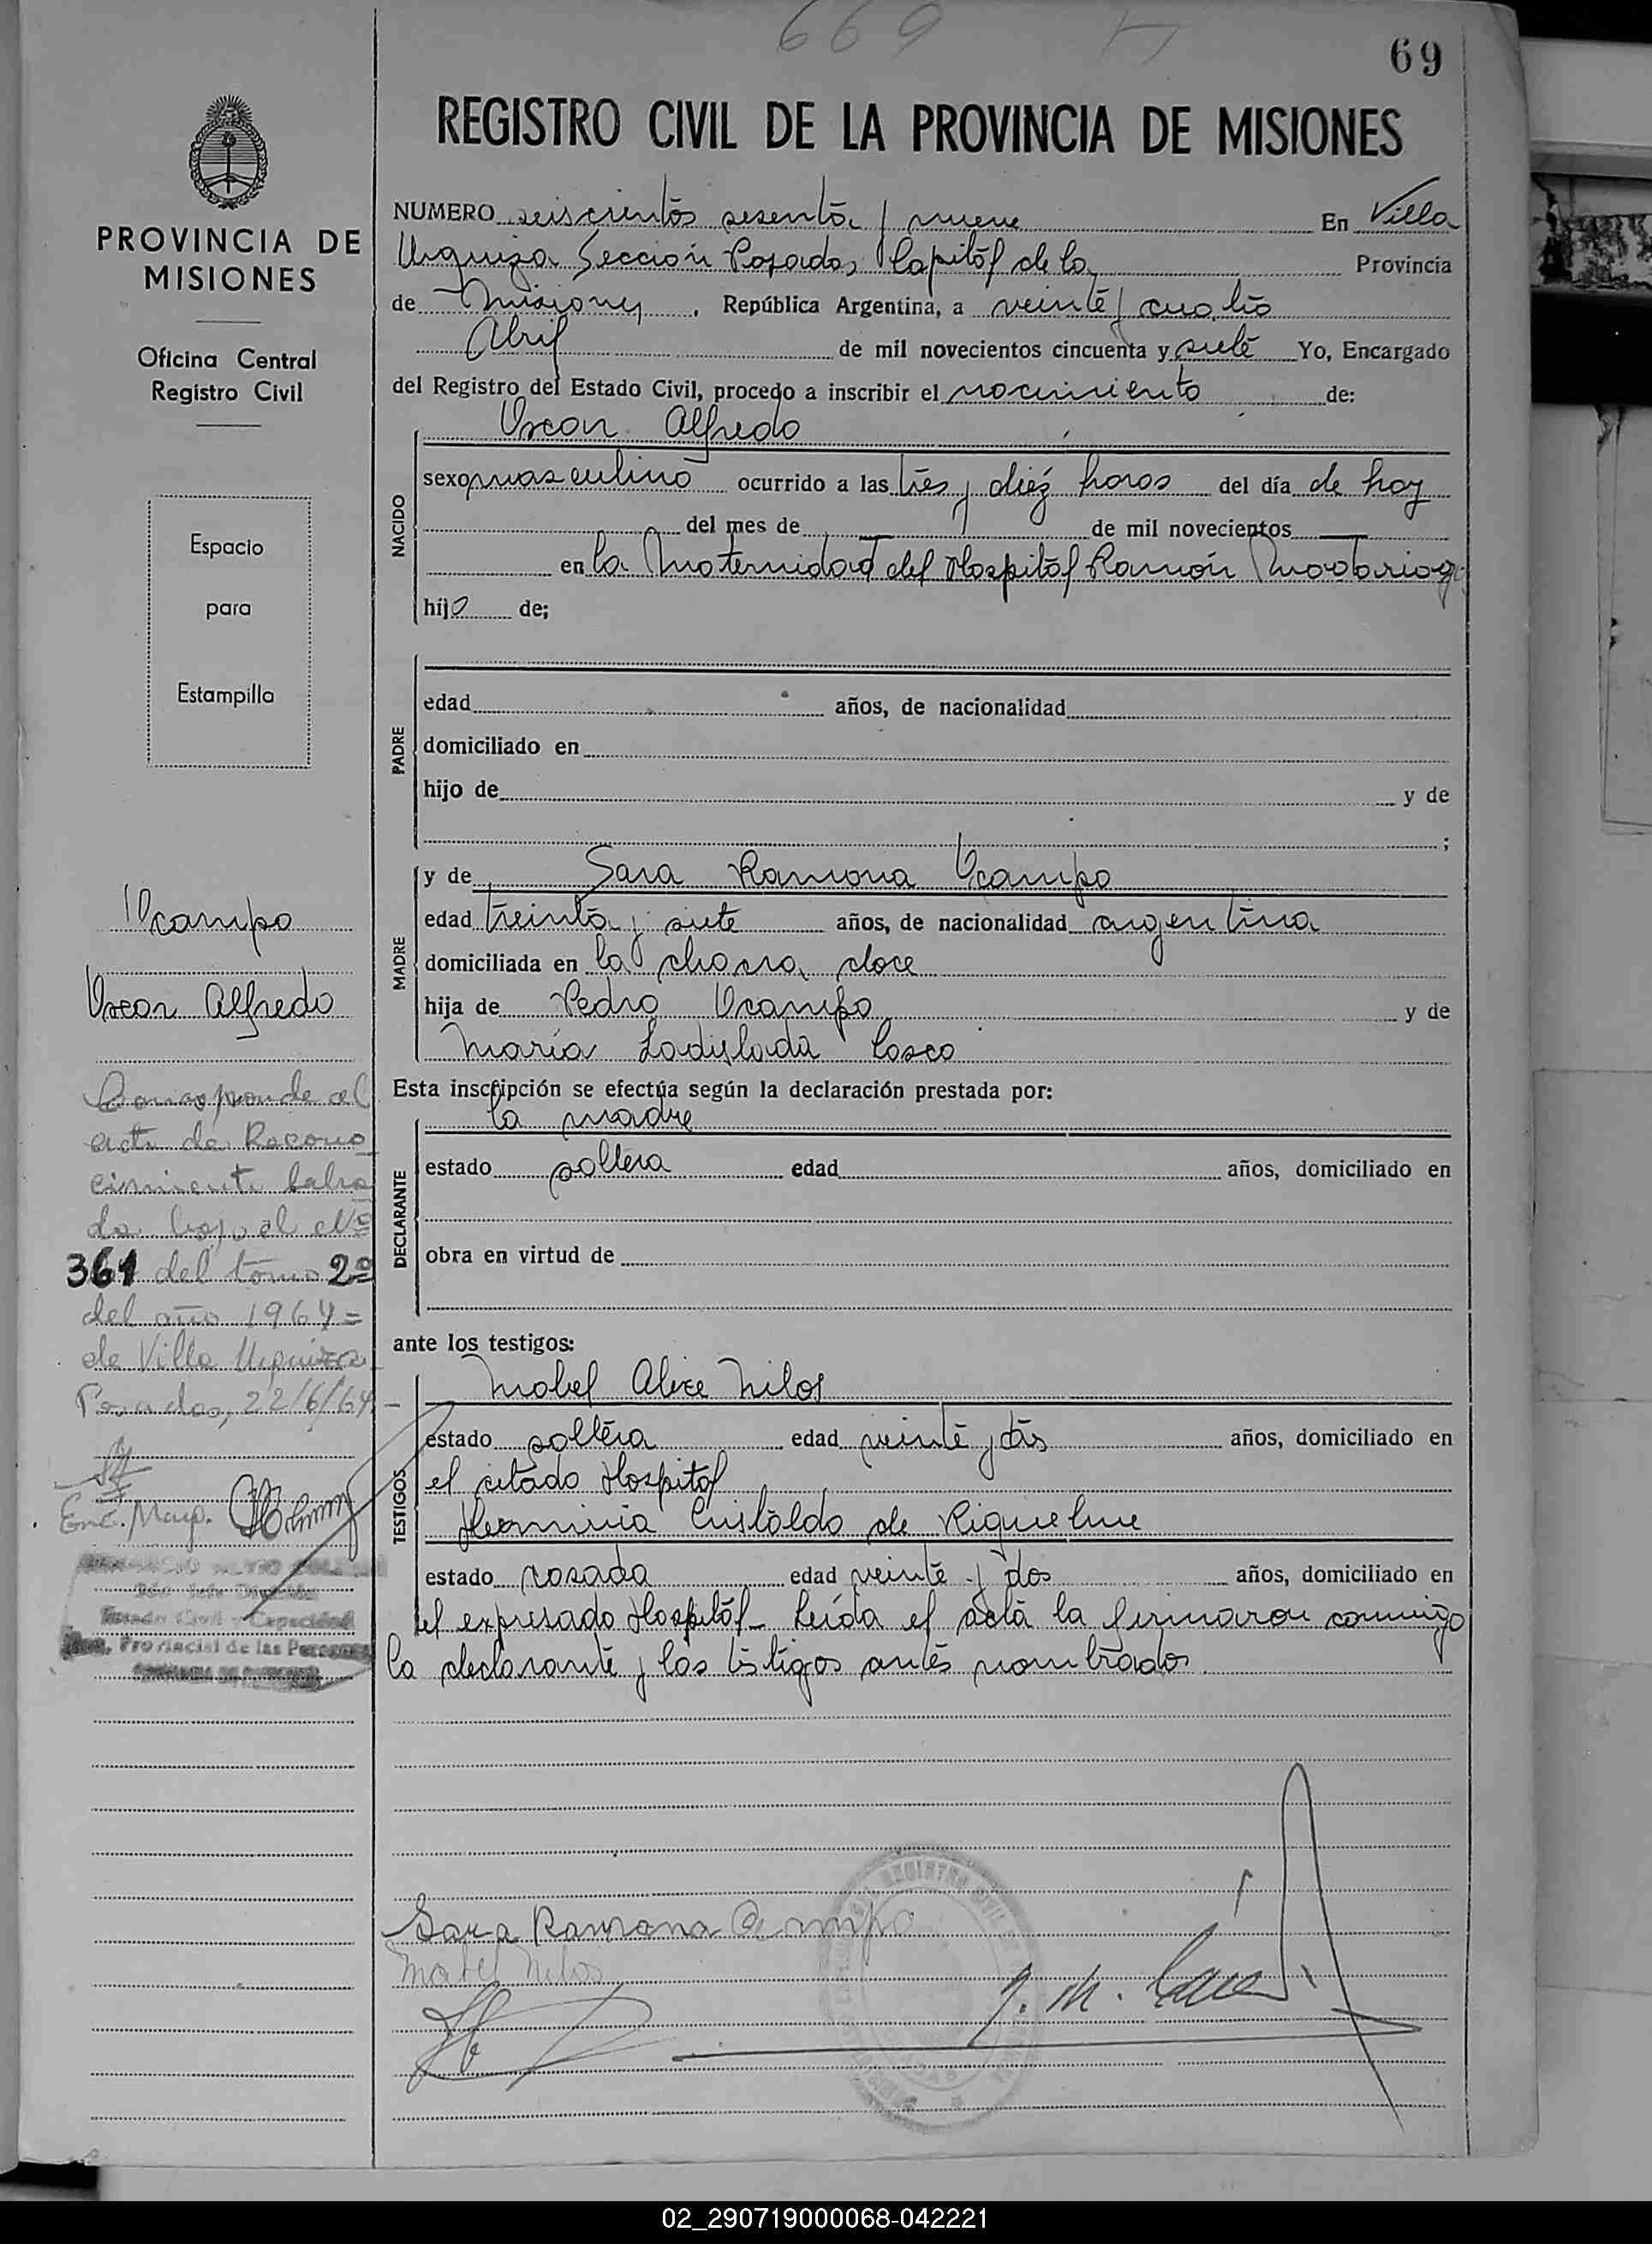 669
69
REGISTRO CIVIL DE LA PROVINCIA DE MISIONES
PROVINCIA DE
MISIONES
Oficina Central
Registro Civil
Espacio
para
Estampilla
Ocampo
Oscar Alfredo
Corresponde al
acta de Recono
cimiento labra
da bajo el Nº
361 del tomo 2º
del año 1964=
de Villa Urquiza
Posadas, 22/6/64-
Enc. Mayo.
Estado Civil y Capacidad
Provincial de las Personas
NUMERO seiscientos sesenta y nueve En Villa
Urquiza Sección Posadas Capital de la Provincia
de Misiones, República Argentina, a veinte y cuatro
Abril de mil novecientos cincuenta y siete Yo, Encargado
del Registro del Estado Civil, procedo a inscribir el nacimiento de:
NACIDO
Oscar Alfredo
sexo masculino ocurrido a las tres y diez horas del día de hoy
del mes de de mil novecientos
en la Maternidad del Hospital Ramón Madariaga
hijo de;
PADRE
edad años, de nacionalidad
domiciliado en
hijo de y de
;
MADRE
y de Sara Ramona Ocampo
edad treinta y siete años, de nacionalidad argentina
domiciliada en la chacra doce
hija de Pedro Ocampo y de
María Ladislada
Esta inscripción se efectúa según la declaración prestada por:
DECLARANTE
la madre
estado soltera edad años, domiciliado en
obra en virtud de
ante los testigos:
TESTIGOS
Mabel Alice Nilos
estado soltera edad veinte y dos años, domiciliado en
el citado Hospital
Herminia Cristaldo de Riquelme
estado casada edad veinte y dos años, domiciliado en
el expresado Hospital_ Leída el acta la firmaron conmigo
la declarante y los testigos antes nombrados
Sara Ramona Ocampo
Mabel Nilos
02_290719000068-042221